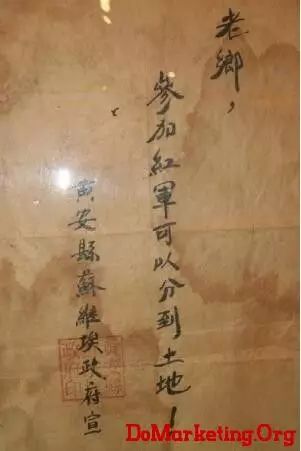 老鄉，
參加紅軍可以分到土地！
黃安縣蘇維埃政府宣
DoMarketing.Org